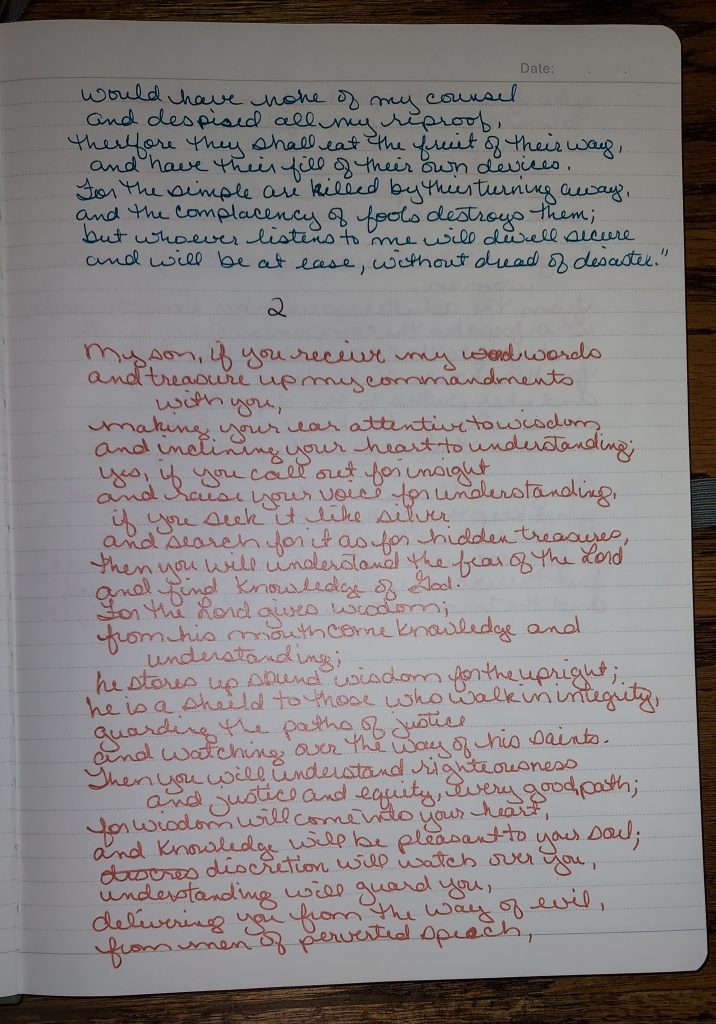 Date:
would have none of my counsel
and despised all my reproof,
therefore they shall eat the fruit of their way,
and have their fill of their own devices.
For the simple are killed by their turning away,
and the complacency of fools destroys them;
but whoever listens to me will dwell secure
and will be at ease, without dread of disaster."
2
My son, if you receive my word words
and treasure up my commandments
with you,
making your ear attentive to wisdom
and inclining your heart to understanding;
yes, if you call out for insight
and raise your voice for understanding,
if you seek it like silver
and search for it as for hidden treasures,
then you will understand the fear of the Lord
and find knowledge of God.
For the Lord gives wisdom;
from his mouth come knowledge and
understanding;
he stores up sound wisdom for the upright;
he is a sheild to those who walk in integrity,
guarding the paths of justice
and watching over the way of his saints.
Then you will understand righteousness
and justice and equity, every good path;
for wisdom will come into your heart,
and knowledge will be pleasant to your soul;
discres discretion will watch over you,
understanding will guard you,
delivering you from the way of evil,
from men of perverted speech,